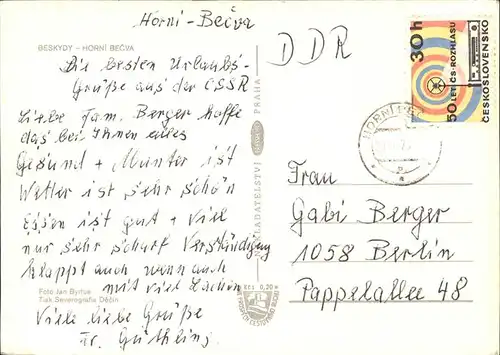 Horni-Bečva
BESKYDY – HORNÍ BEČVA
Die besten Urlaubs-
Grüße aus der CSSR
Liebe Fam. Berger hoffe
das bei Ihnen alles
Gesund + Munter ist
Wetter ist sehr schön
Essen ist gut + viel
nur sehr scharf Verständigung
klappt auch wenn auch
mit viel Lachen
Viele liebe Grüße
Fr. Güthling
Foto Jan Byrtus
Tisk Severografia Děčín
NAKLADATELSTVÍ
PRAHA
DDR
30h
50 LET ČS. ROZHLASU
ČESKOSLOVENSKO
HORNÍ BEČ
Frau
Gabi Berger
1058 Berlin
Pappelallee 48